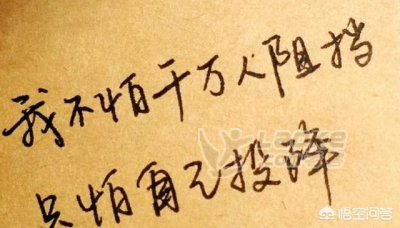 我不怕千万人阻挡
只怕自己投降
悟空问答